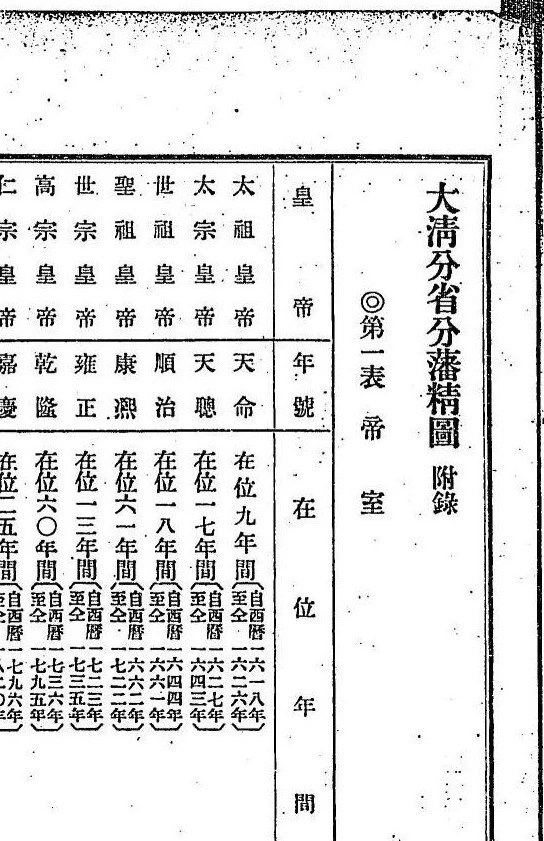 大淸分省分藩精圖 附錄
◎第一表 帝室
皇帝 年號 在位年間
太祖皇帝 天命 在位九年間〔自西曆一六一八年 至仝一六二六年〕
太宗皇帝 天聰 在位一七年間〔自西曆一六二七年 至仝一六四三年〕
世祖皇帝 順治 在位一八年間〔自西曆一六四四年 至仝一六六一年〕
聖祖皇帝 康熙 在位六一年間〔自西曆一六六二年 至仝一七二二年〕
世宗皇帝 雍正 在位一三年間〔自西曆一七二三年 至仝一七三五年〕
高宗皇帝 乾隆 在位六〇年間〔自西曆一七三六年 至仝一七九五年〕
仁宗皇帝 嘉慶 在位二五年間〔自西曆一七九六年 至仝一八二〇年〕